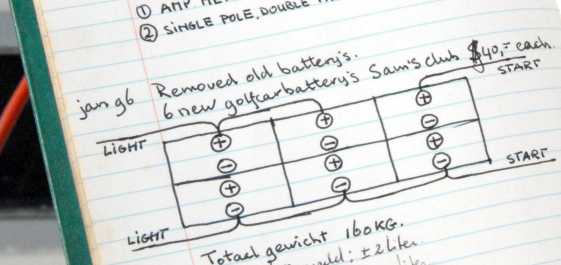 ① AMP ME
② SINGLE POLE, DOUBLE
jan 96 Removed old battery's.
6 new golfcarbattery's Sam's club $40,= each.
START
LIGHT
⊕ ⊕ ⊕
⊖ ⊖ ⊖
⊕ ⊕ ⊕
⊖ ⊖ ⊖
START
LIGHT
Totaal gewicht 160KG.
: ±2 liter
liter